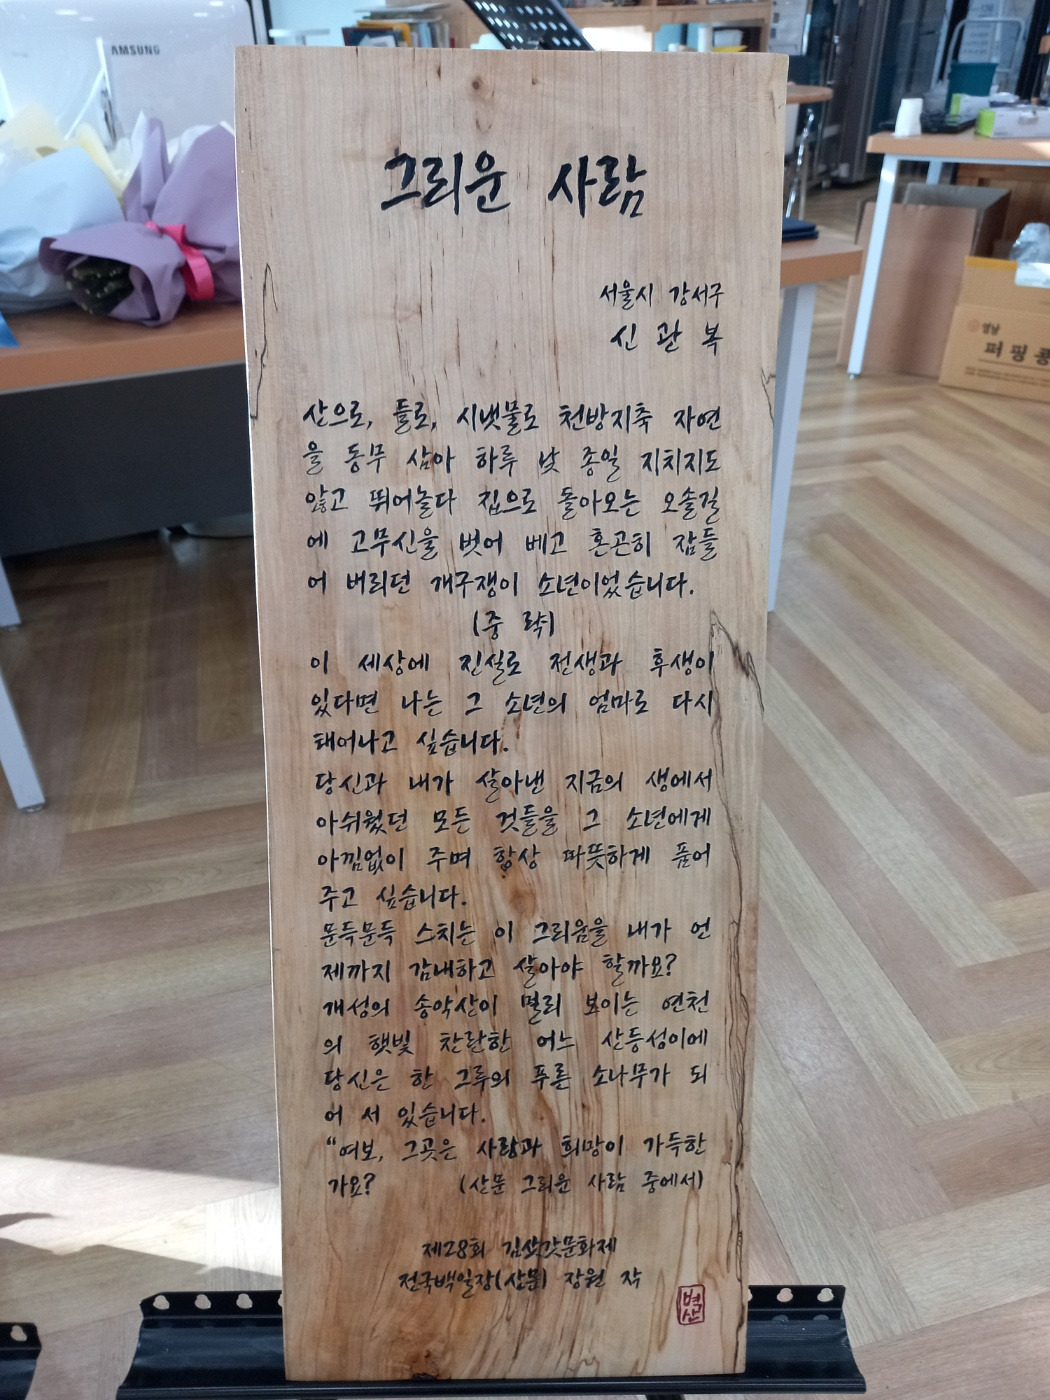 SAMSUNG
그리운 사람
서울시 강서구
신 관 복
산으로, 들로, 시냇물로 천방지축 자연
을 동무 삼아 하루 낮 종일 지치지도
않고 뛰어놀다 집으로 돌아오는 오솔길
에 고무신을 벗어 베고 혼곤히 잠들
어 버리던 개구쟁이 소년이었습니다.
(중 략)
이 세상에 진실로 전생과 후생이
있다면 나는 그 소년의 엄마로 다시
태어나고 싶습니다.
당신과 내가 살아낸 지금의 생에서
아쉬웠던 모든 것들을 그 소년에게
아낌없이 주며 항상 따뜻하게 품어
주고 싶습니다.
문득문득 스치는 이 그리움을 내가 언
제까지 감내하고 살아야 할까요?
개성의 송악산이 멀리 보이는 연천
의 햇빛 찬란한 어느 산등성이에
당신은 한 그루의 푸른 소나무가 되
어 서 있습니다.
"여보, 그곳은 사랑과 희망이 가득한
가요? (산문 그리운 사람 중에서)
제28회 김삿갓문화제
전국백일장(산문) 장원 작
범산
퍼핑콩